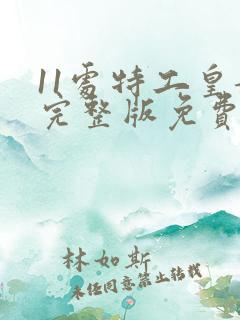 11處特工皇
完整版免費
林如斯
未经同意禁止转载